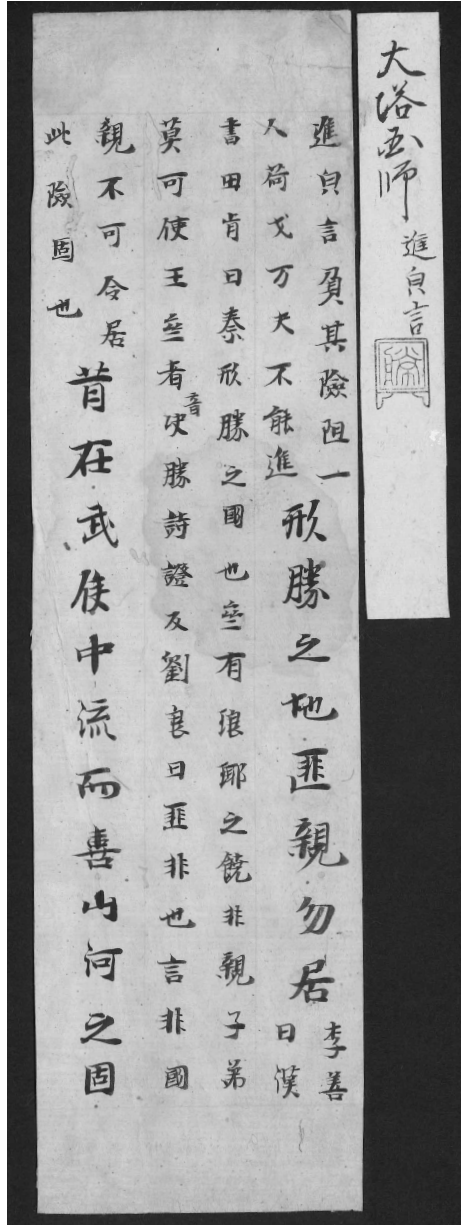 大塔師 進皃言
進皃言負其險阻一
人荷戈万夫不能進
形勝之地匪親勿居
李善
曰漢
書田肯曰秦形勝之國也齊有琅耶之饒非親子弟
莫可使王齊者音决勝詩證反劉良曰匪非也言非國
親不可令居
此險固也
昔在武侯中流而喜山河之固